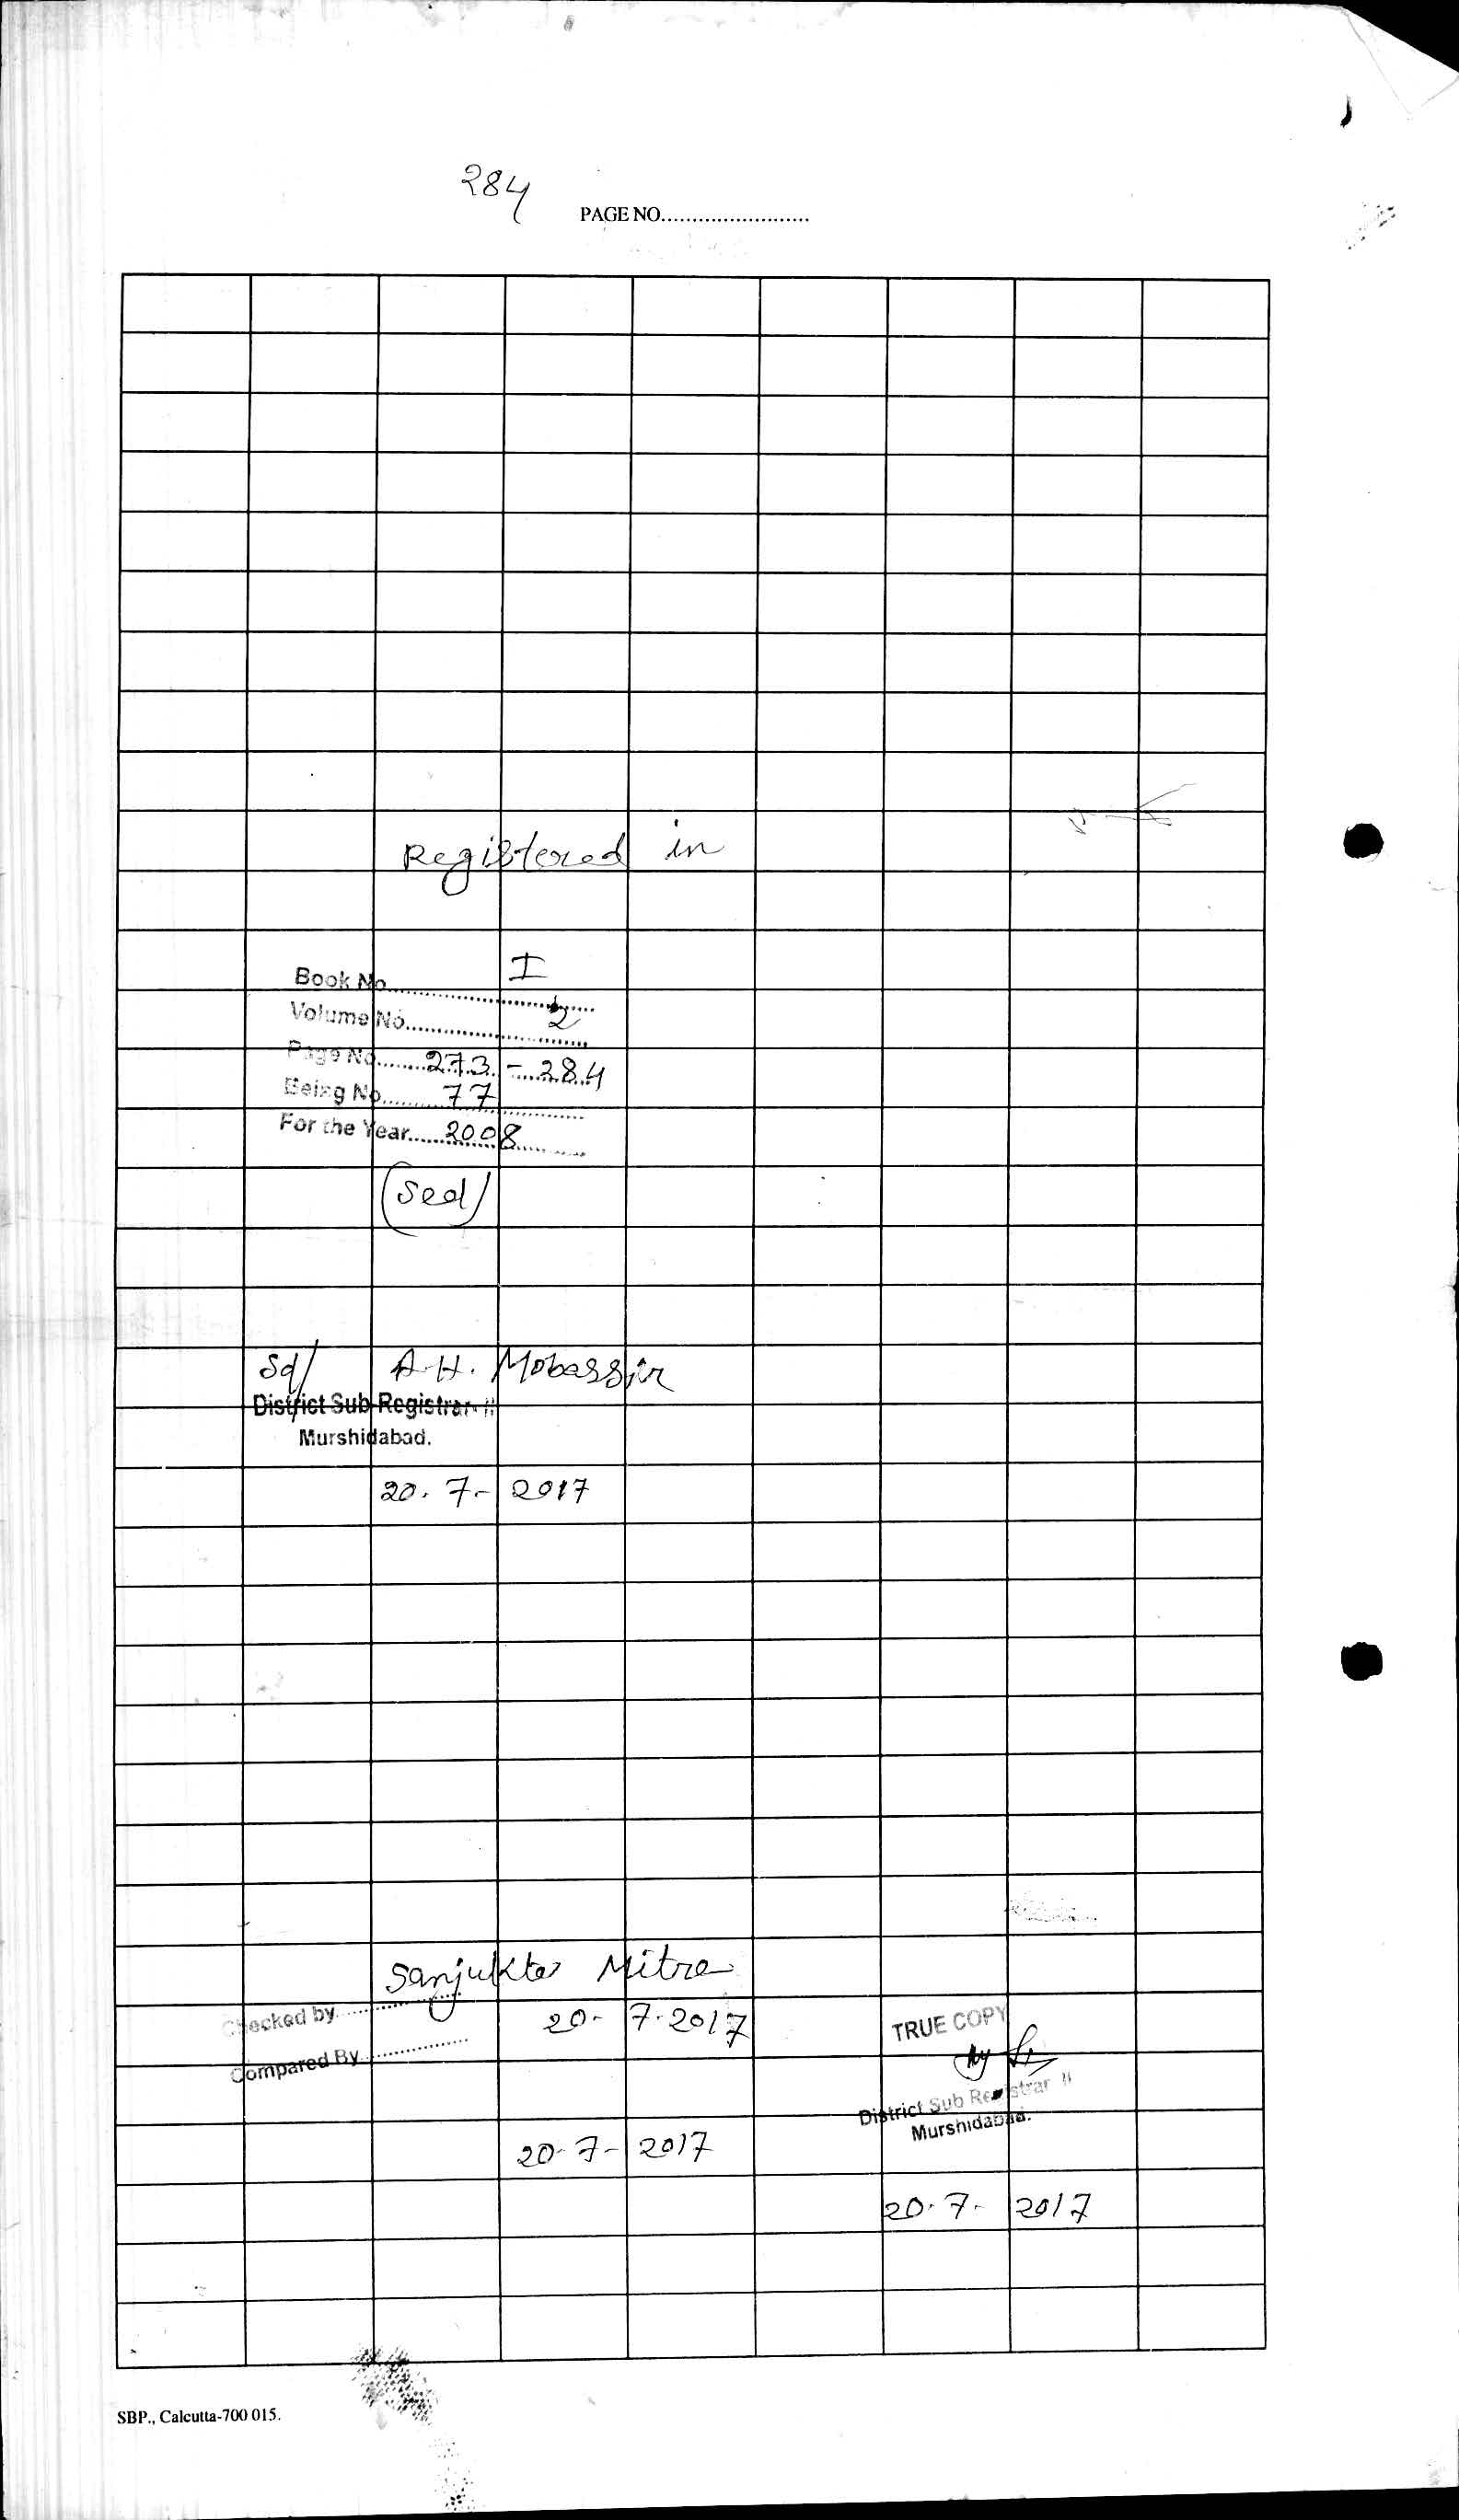 284
PAGE NO........................
Registered in
Book No.................... I
Volume No.................... 2
Page No........273 - 284
Being No..........77
For the Year......2008
(Seal)
Sd/ A.H. Mobassir
District Sub Registrar-II
Murshidabad.
20.7.-2017
Sanjukta Mitra
Checked by....................
20-7-2017
TRUE COPY
Compared By..................
District Sub Registrar II
Murshidabad.
20-7-2017
20.7.-2017
SBP., Calcutta-700 015.